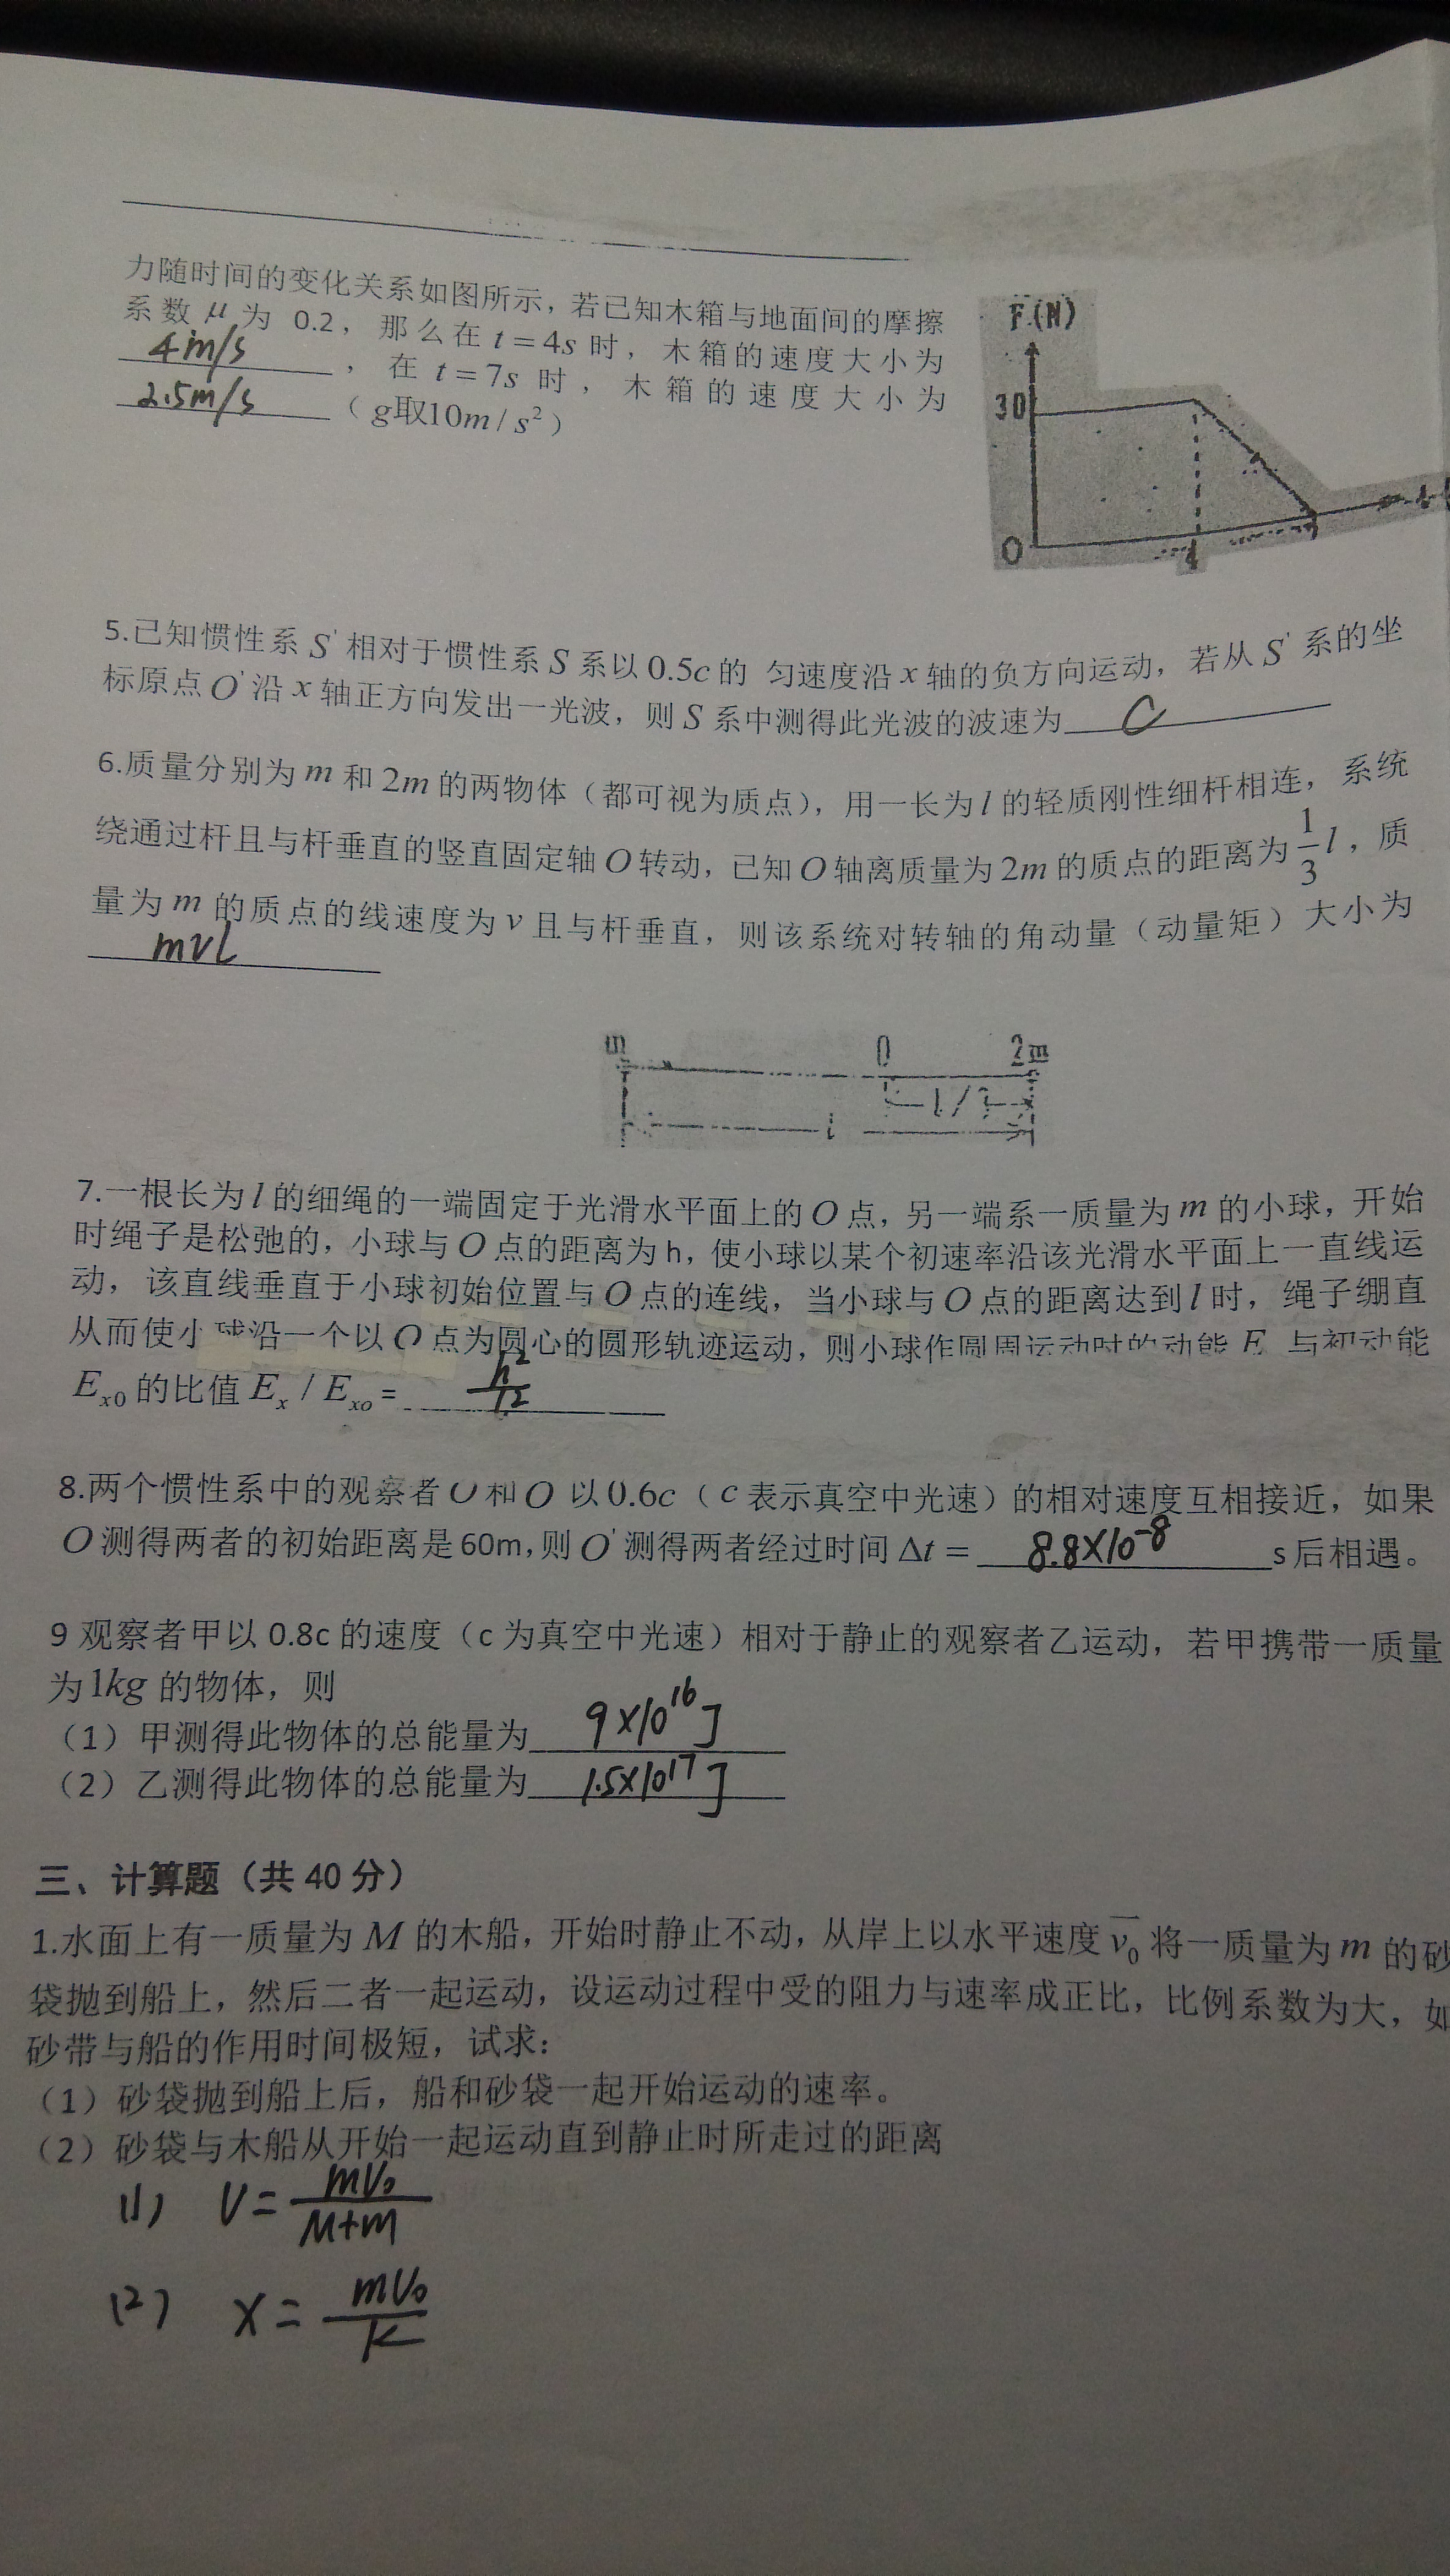 力随时间的变化关系如图所示，若已知木箱与地面间的摩擦
系数 μ 为 0.2，那么在 t = 4s 时，木箱的速度大小为
4m/s，在 t = 7s 时，木箱的速度大小为
2.5m/s（g取10m/s²）
F(N)
30
0
4
7
5.已知惯性系 S' 相对于惯性系 S 系以 0.5c 的 匀速度沿 x 轴的负方向运动，若从 S' 系的坐
标原点 O' 沿 x 轴正方向发出一光波，则 S 系中测得此光波的波速为 C
6.质量分别为 m 和 2m 的两物体（都可视为质点），用一长为 l 的轻质刚性细杆相连，系统
绕通过杆且与杆垂直的竖直固定轴 O 转动，已知 O 轴离质量为 2m 的质点的距离为 1/3 l，质
量为 m 的质点的线速度为 v 且与杆垂直，则该系统对转轴的角动量（动量矩）大小为
mvl
m 0 2m
l
7.一根长为 l 的细绳的一端固定于光滑水平面上的 O 点，另一端系一质量为 m 的小球，开始
时绳子是松弛的，小球与 O 点的距离为 h，使小球以某个初速率沿该光滑水平面上一直线运
动，该直线垂直于小球初始位置与 O 点的连线，当小球与 O 点的距离达到 l 时，绳子绷直
从而使小球沿一个以 O 点为圆心的圆形轨迹运动，则小球作圆周运动时的动能 E 与初动能
Ex0 的比值 Ex / Exo = h²/l²
8.两个惯性系中的观察者 O 和 O 以 0.6c（c 表示真空中光速）的相对速度互相接近，如果
O 测得两者的初始距离是 60m, 则 O' 测得两者经过时间 Δt = 8.8×10⁻⁸ s 后相遇。
9 观察者甲以 0.8c 的速度（c 为真空中光速）相对于静止的观察者乙运动，若甲携带一质量
为 1kg 的物体，则
（1）甲测得此物体的总能量为 9×10¹⁶J
（2）乙测得此物体的总能量为 1.5×10¹⁷J
三、计算题（共 40 分）
1.水面上有一质量为 M 的木船，开始时静止不动，从岸上以水平速度 v₀ 将一质量为 m 的砂
袋抛到船上，然后二者一起运动，设运动过程中受的阻力与速率成正比，比例系数为大，如
砂带与船的作用时间极短，试求：
（1）砂袋抛到船上后，船和砂袋一起开始运动的速率。
（2）砂袋与木船从开始一起运动直到静止时所走过的距离
(1) V = mv₀/(M+m)
(2) x = mv₀/k